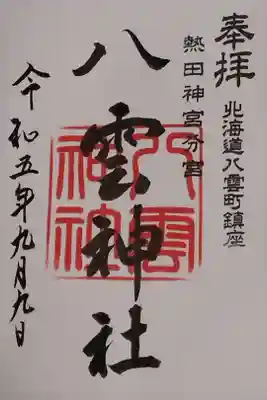 奉拝
北海道八雲町鎮座
熱田神宮分宮
八雲神社
八雲神社
令和五年九月九日